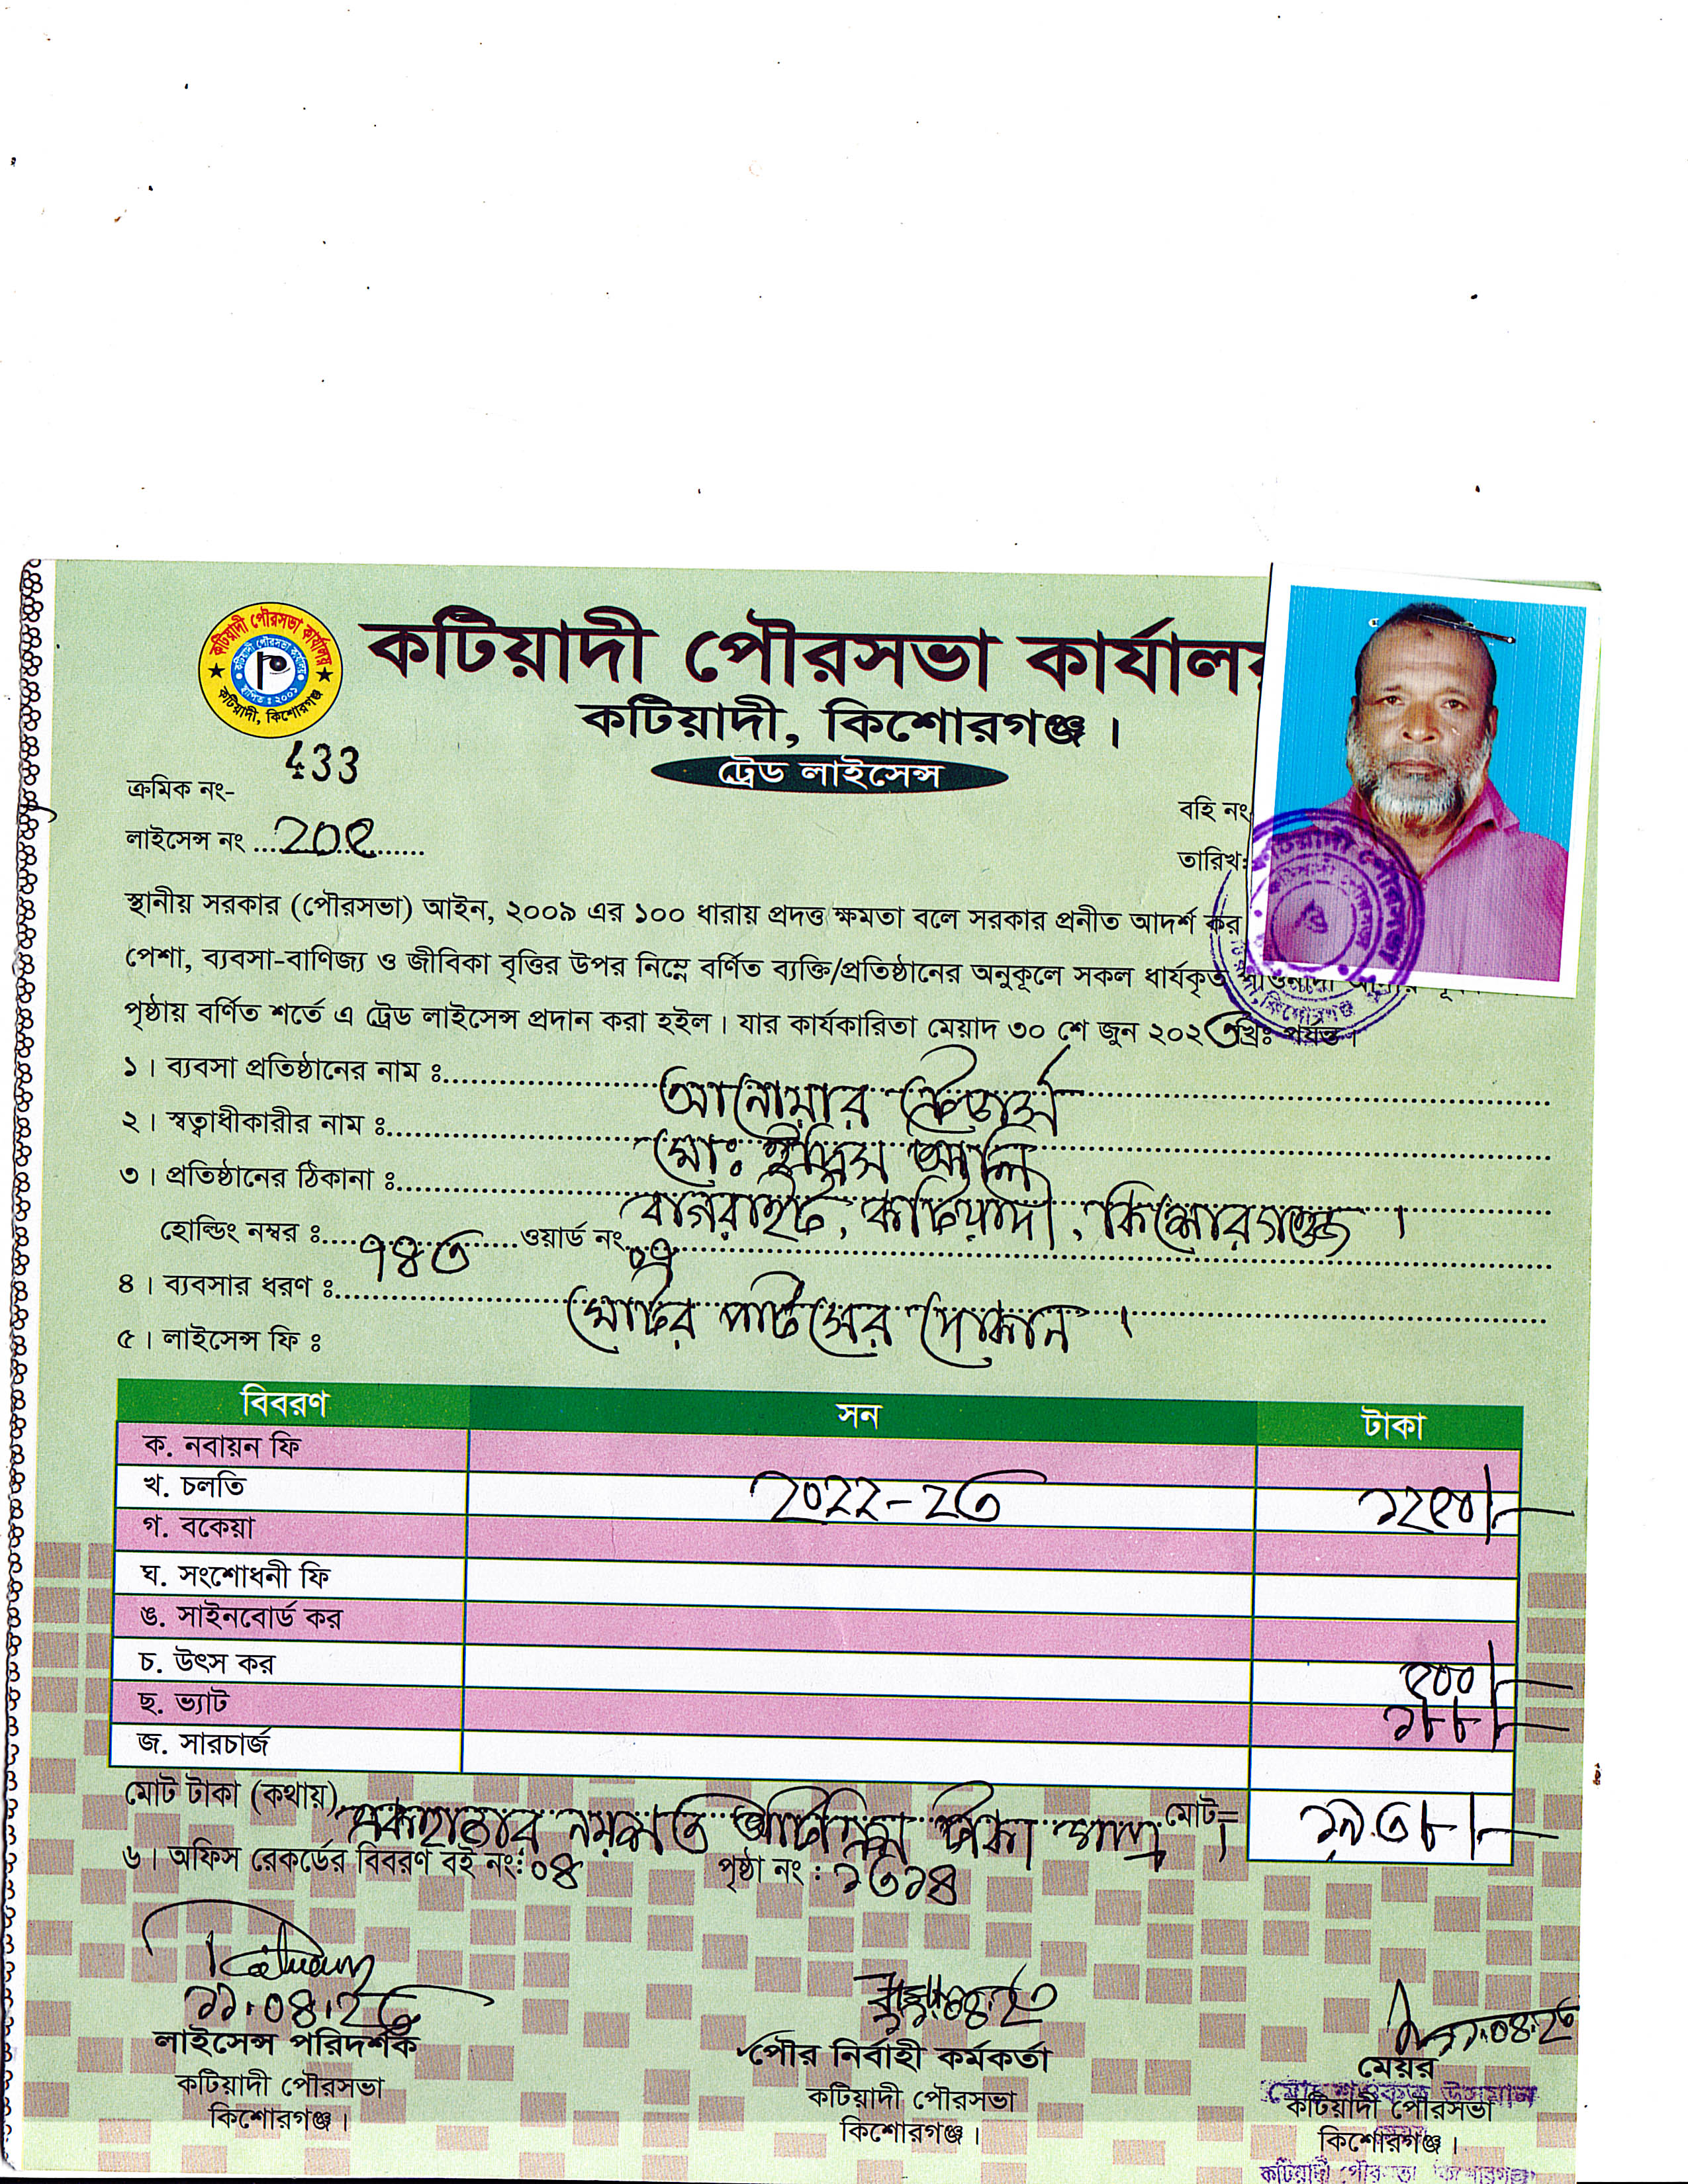 কটিয়াদী পৌরসভা কার্যালয়
কটিয়াদী, কিশোরগঞ্জ।
কটিয়াদী পৌরসভা কার্যালয়
স্থাপিত : ২০০১
কটিয়াদী, কিশোরগঞ্জ
ট্রেড লাইসেন্স
ক্রমিক নং- 433
বহি নং
লাইসেন্স নং ....২০৫
তারিখঃ
স্থানীয় সরকার (পৌরসভা) আইন, ২০০৯ এর ১০০ ধারায় প্রদত্ত ক্ষমতা বলে সরকার প্রনীত আদর্শ কর
পেশা, ব্যবসা-বাণিজ্য ও জীবিকা বৃত্তির উপর নিম্নে বর্ণিত ব্যক্তি/প্রতিষ্ঠানের অনুকূলে সকল ধার্যকৃত
পৃষ্ঠায় বর্ণিত শর্তে এ ট্রেড লাইসেন্স প্রদান করা হইল। যার কার্যকারিতা মেয়াদ ৩০ শে জুন ২০২৩খ্রিঃ পর্যন্ত।
১। ব্যবসা প্রতিষ্ঠানের নাম ঃ আনোয়ার ট্রেডার্স
২। স্বত্বাধীকারীর নাম ঃ মোঃ ইদ্রিস আলি
৩। প্রতিষ্ঠানের ঠিকানা ঃ বাগরাইট, কটিয়াদী, কিশোরগঞ্জ।
হোল্ডিং নম্বর ঃ ৭৪৩ ওয়ার্ড নং
৪। ব্যবসার ধরণ ঃ মোটর পার্টসের দোকান।
৫। লাইসেন্স ফি ঃ
বিবরণ সন টাকা
ক. নবায়ন ফি
খ. চলতি ২০২২-২৩ ১২৫০/-
গ. বকেয়া
ঘ. সংশোধনী ফি
ঙ. সাইনবোর্ড কর
চ. উৎস কর ৫০০/-
ছ. ভ্যাট ১৮৮/-
জ. সারচার্জ
মোট টাকা (কথায়) একহাজার নয়শত আটত্রিশ টাকা মাত্র। মোট= ১৯৩৮/-
৬। অফিস রেকর্ডের বিবরণ বই নং: ০৪ পৃষ্ঠা নং : ১৩১৪
১১.০৪.২৩
লাইসেন্স পরিদর্শক
কটিয়াদী পৌরসভা
কিশোরগঞ্জ।
পৌর নির্বাহী কর্মকর্তা
কটিয়াদী পৌরসভা
কিশোরগঞ্জ।
মেয়র
কটিয়াদী পৌরসভা
কিশোরগঞ্জ।